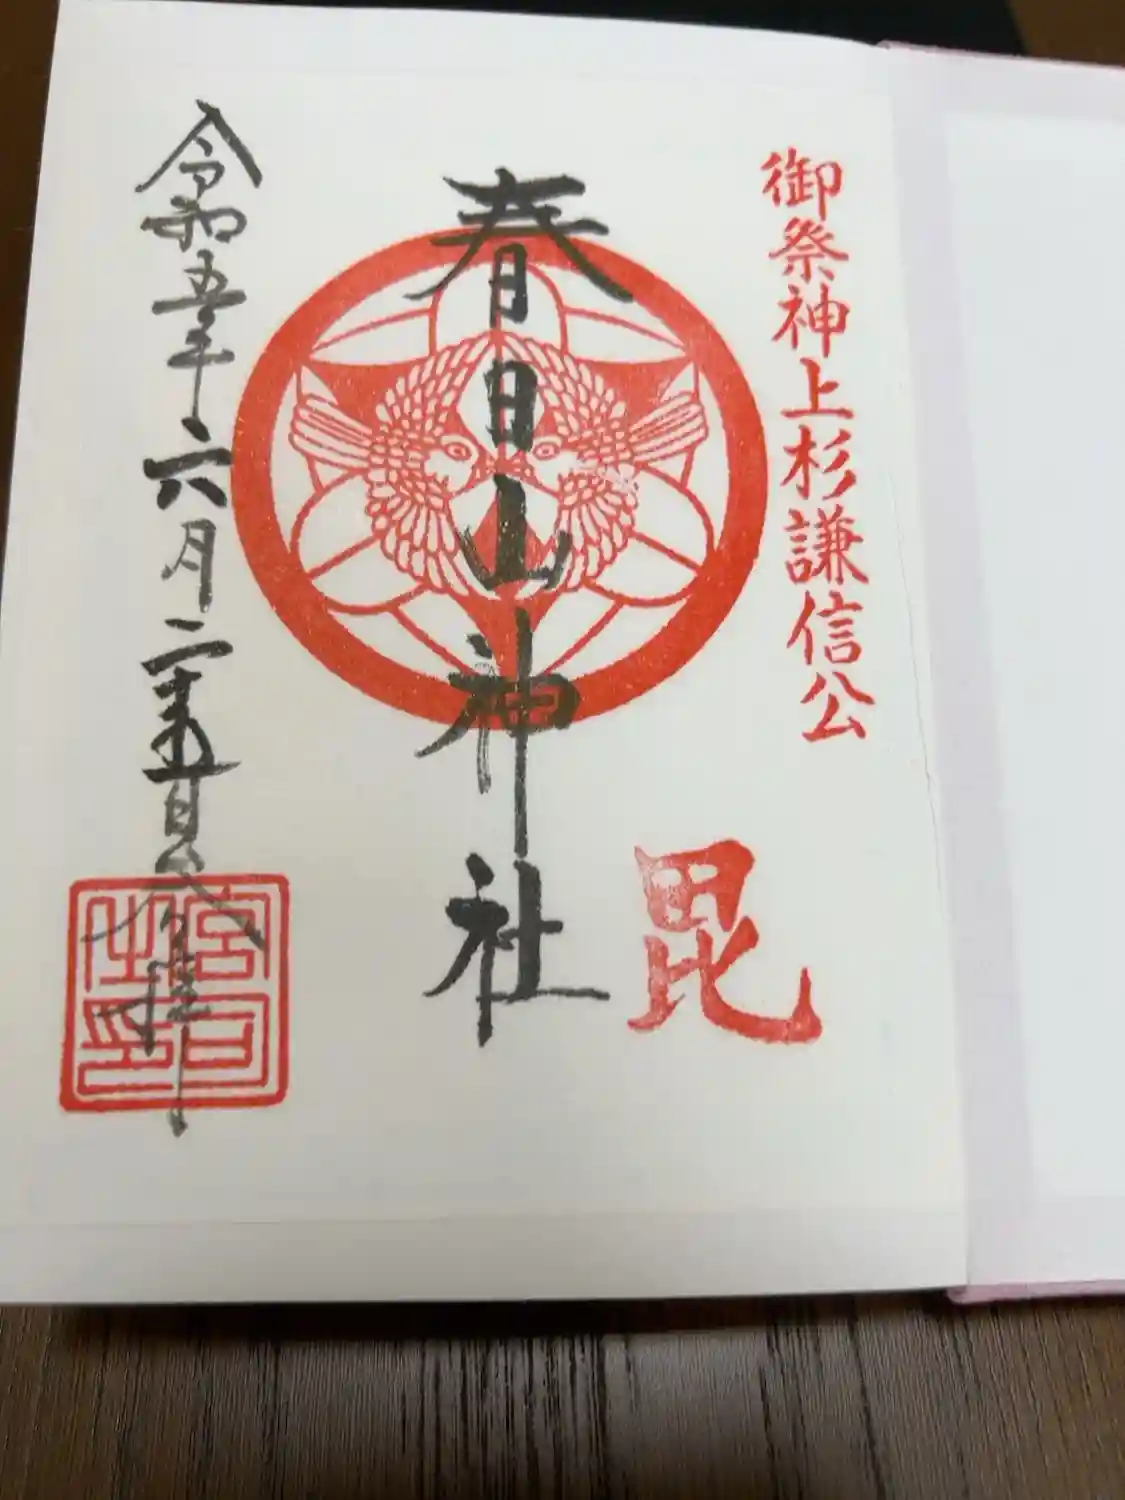 御祭神上杉謙信公
毘
春日山神社
令和五年六月二十五日参拝